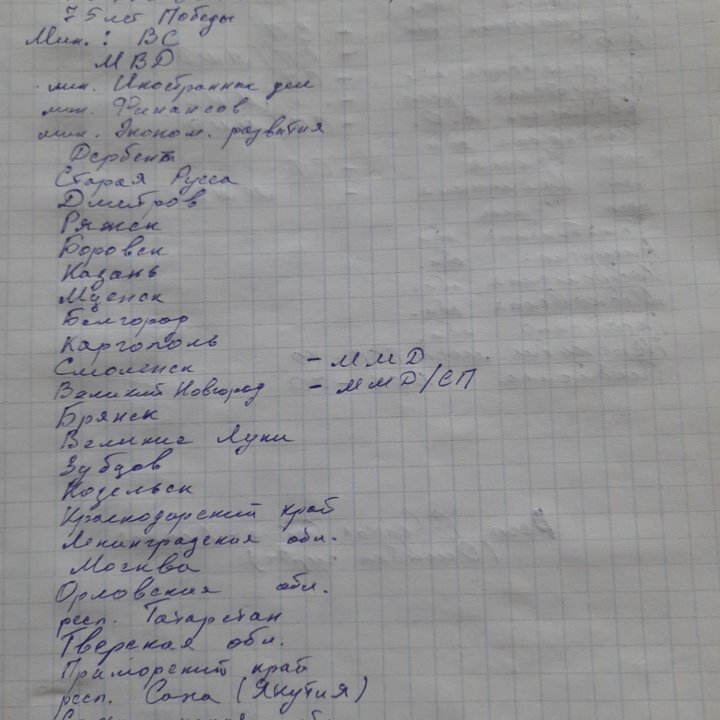 75 лет Победы
Мин. : ВС
МВД
мин. Иностранных дел
мин. Финансов
мин. Эконом. развития
Дербент
Старая Русса
Дмитров
Ряжск
Боровск
Казань
Мценск
Белгород
Каргополь
Смоленск - ММД
Великий Новгород - ММД/СП
Брянск
Великие Луки
Зубцов
Козельск
Краснодарский край
Ленинградская обл.
Москва
Орловская обл.
респ. Татарстан
Тверская обл.
Приморский край
респ. Саха (Якутия)